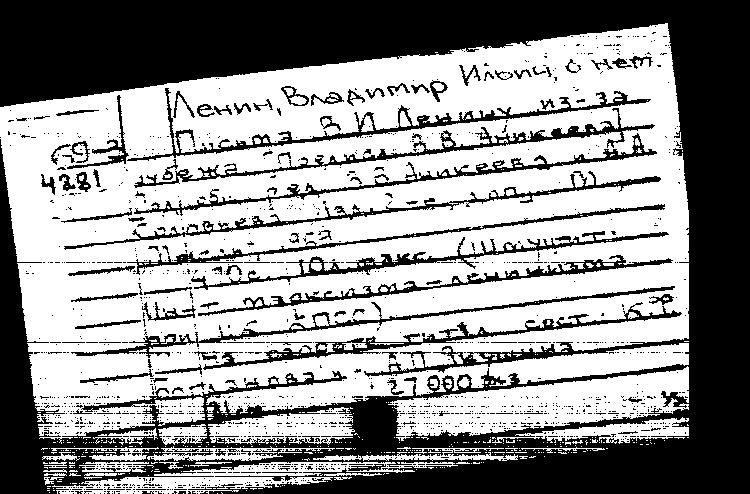 Ленин, Владимир Ильич, о нем.
69-3 Письма В И Ленину из-за
4281 рубежа [Предисл. В.В. Аникеева]
Под общ. ред. В В Аникеева и А.А.
Соловьева Изд. 2-е, доп. М,
"Мысль", 1969
470с., 10л. факс. (Ин-т
марксизма-ленинизма
при ЦК КПСС).
На обороте тит. л сост: К.Ф.
Богданова и А.П. Якушина
27000 экз.